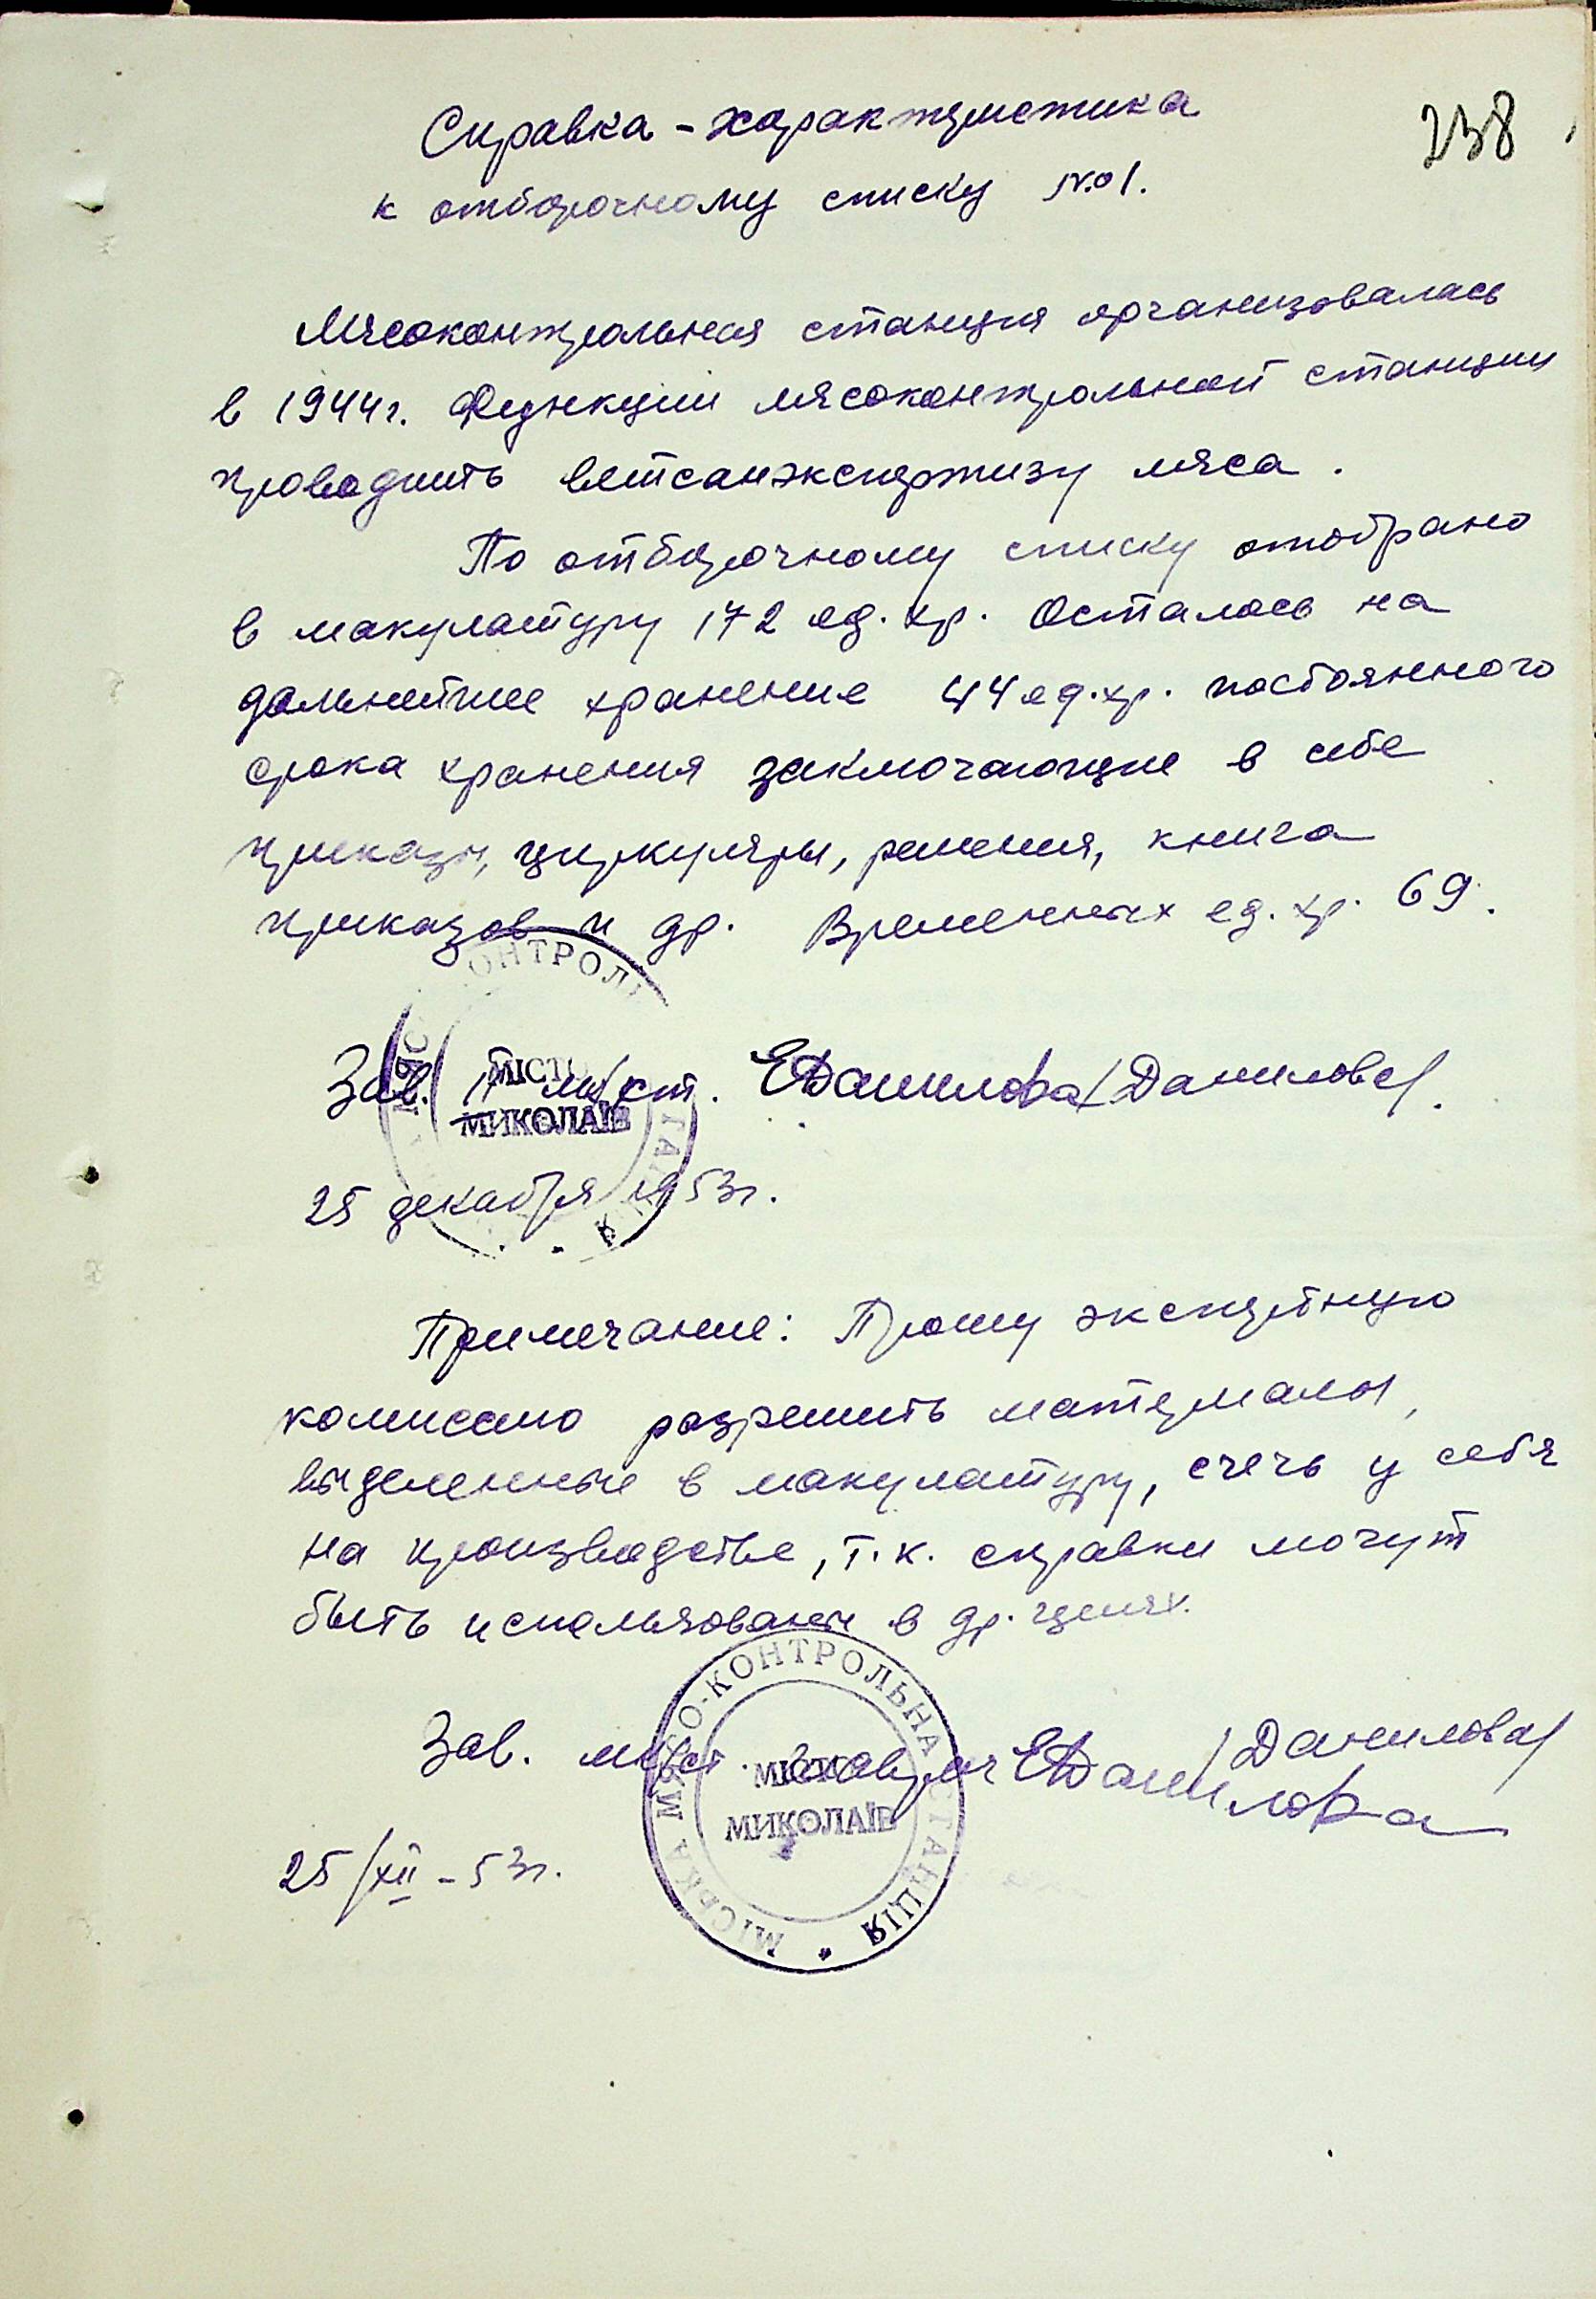 238
Справка - характеристика
к отборочному списку №1.
Мясоконтрольная станция организовалась
в 1944г. Функции мясоконтрольной станции
проводить ветсанэкспертизу мяса.
По отборочному списку отобрано
в макулатуру 172 ед. хр. Осталось на
дальнейшее хранение 44 ед. хр. постоянного
срока хранения заключающие в себе
приказы, циркуляры, решения, книга
приказов и др. Временных ед. хр. 69.
Зав. м/к ст. ЕДанилова /Данилова/.
МІСТО
МИКОЛАЇВ
25 декабря 1953г.
Примечание: Прошу экспертную
комиссию разрешить материалы,
выделенные в макулатуру, сжечь у себя
на производстве, т.к. справки могут
быть использованы в др. целях.
МІСЬКА МЯСО-КОНТРОЛЬНА СТАНЦІЯ
Зав. ЕДанилова /Данилова/
МІСТО
МИКОЛАЇВ
25/XII - 53г.